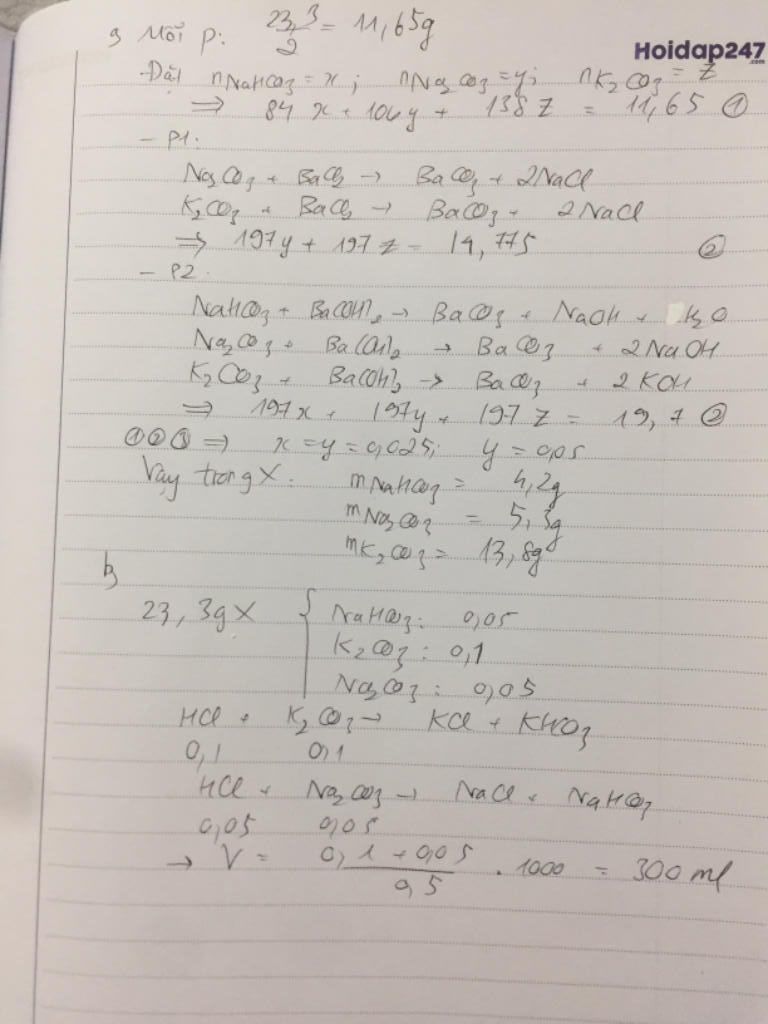 a, Mỗi p: 23,3/2 = 11,65g
Hoidap247.com
Đặt nNaHCO3 = x; nNa2CO3 = y; nK2CO3 = z
⇒ 84x + 106y + 138z = 11,65 ①
- P1:
Na2CO3 + BaCl2 → BaCO3 + 2NaCl
K2CO3 + BaCl2 → BaCO3 + 2NaCl
⇒ 197y + 197z = 14,775 ②
- P2.
NaHCO3 + Ba(OH)2 → BaCO3 + NaOH + H2O
Na2CO3 + Ba(OH)2 → BaCO3 + 2NaOH
K2CO3 + Ba(OH)2 → BaCO3 + 2KOH
⇒ 197x + 197y + 197z = 19,7 ②
①②③ ⇒ x = y = 0,025; y = 0,05
Vậy trong X. mNaHCO3 = 4,2g
mNa2CO3 = 5,3g
mK2CO3 = 13,8g
b,
23,3g X { NaHCO3: 0,05
K2CO3: 0,1
Na2CO3: 0,05
HCl + K2CO3 → KCl + KHCO3
0,1 0,1
HCl + Na2CO3 → NaCl + NaHCO3
0,05 0,05
→ V = (0,1 + 0,05)/0,5 . 1000 = 300 ml